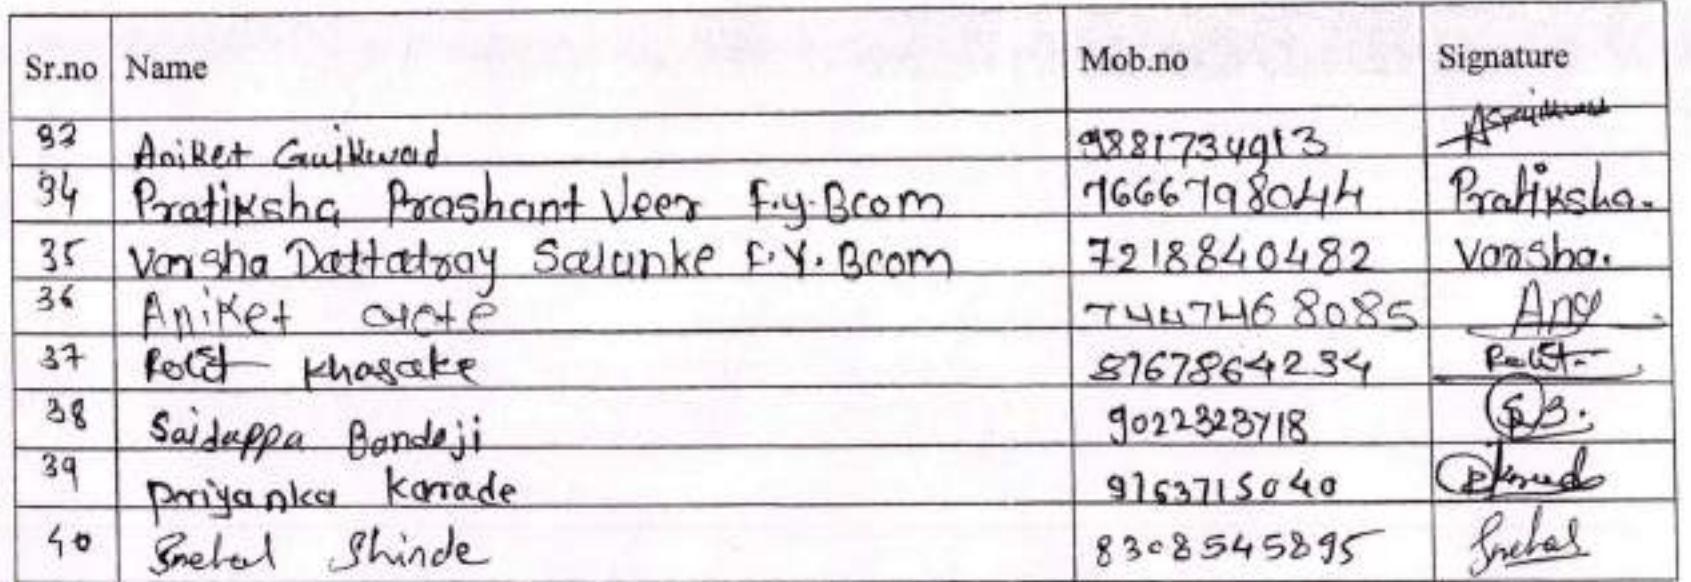 Sr.no Name Mob.no Signature
33 Aniket Gaikwad 9881734913
34 Pratiksha Prashant Veer F.y.Bcom 7666798044 Pratiksha.
35 Varsha Dattatray Salunke F.Y.Bcom 7218840482 Varsha.
36 Aniket 7447468085
37 Khasake 8767864234
38 Saidappa Bandeji 9022323718 S B.
39 Priyanka Karade 9763715040
40 Snehal Shinde 8308545895 Snehal